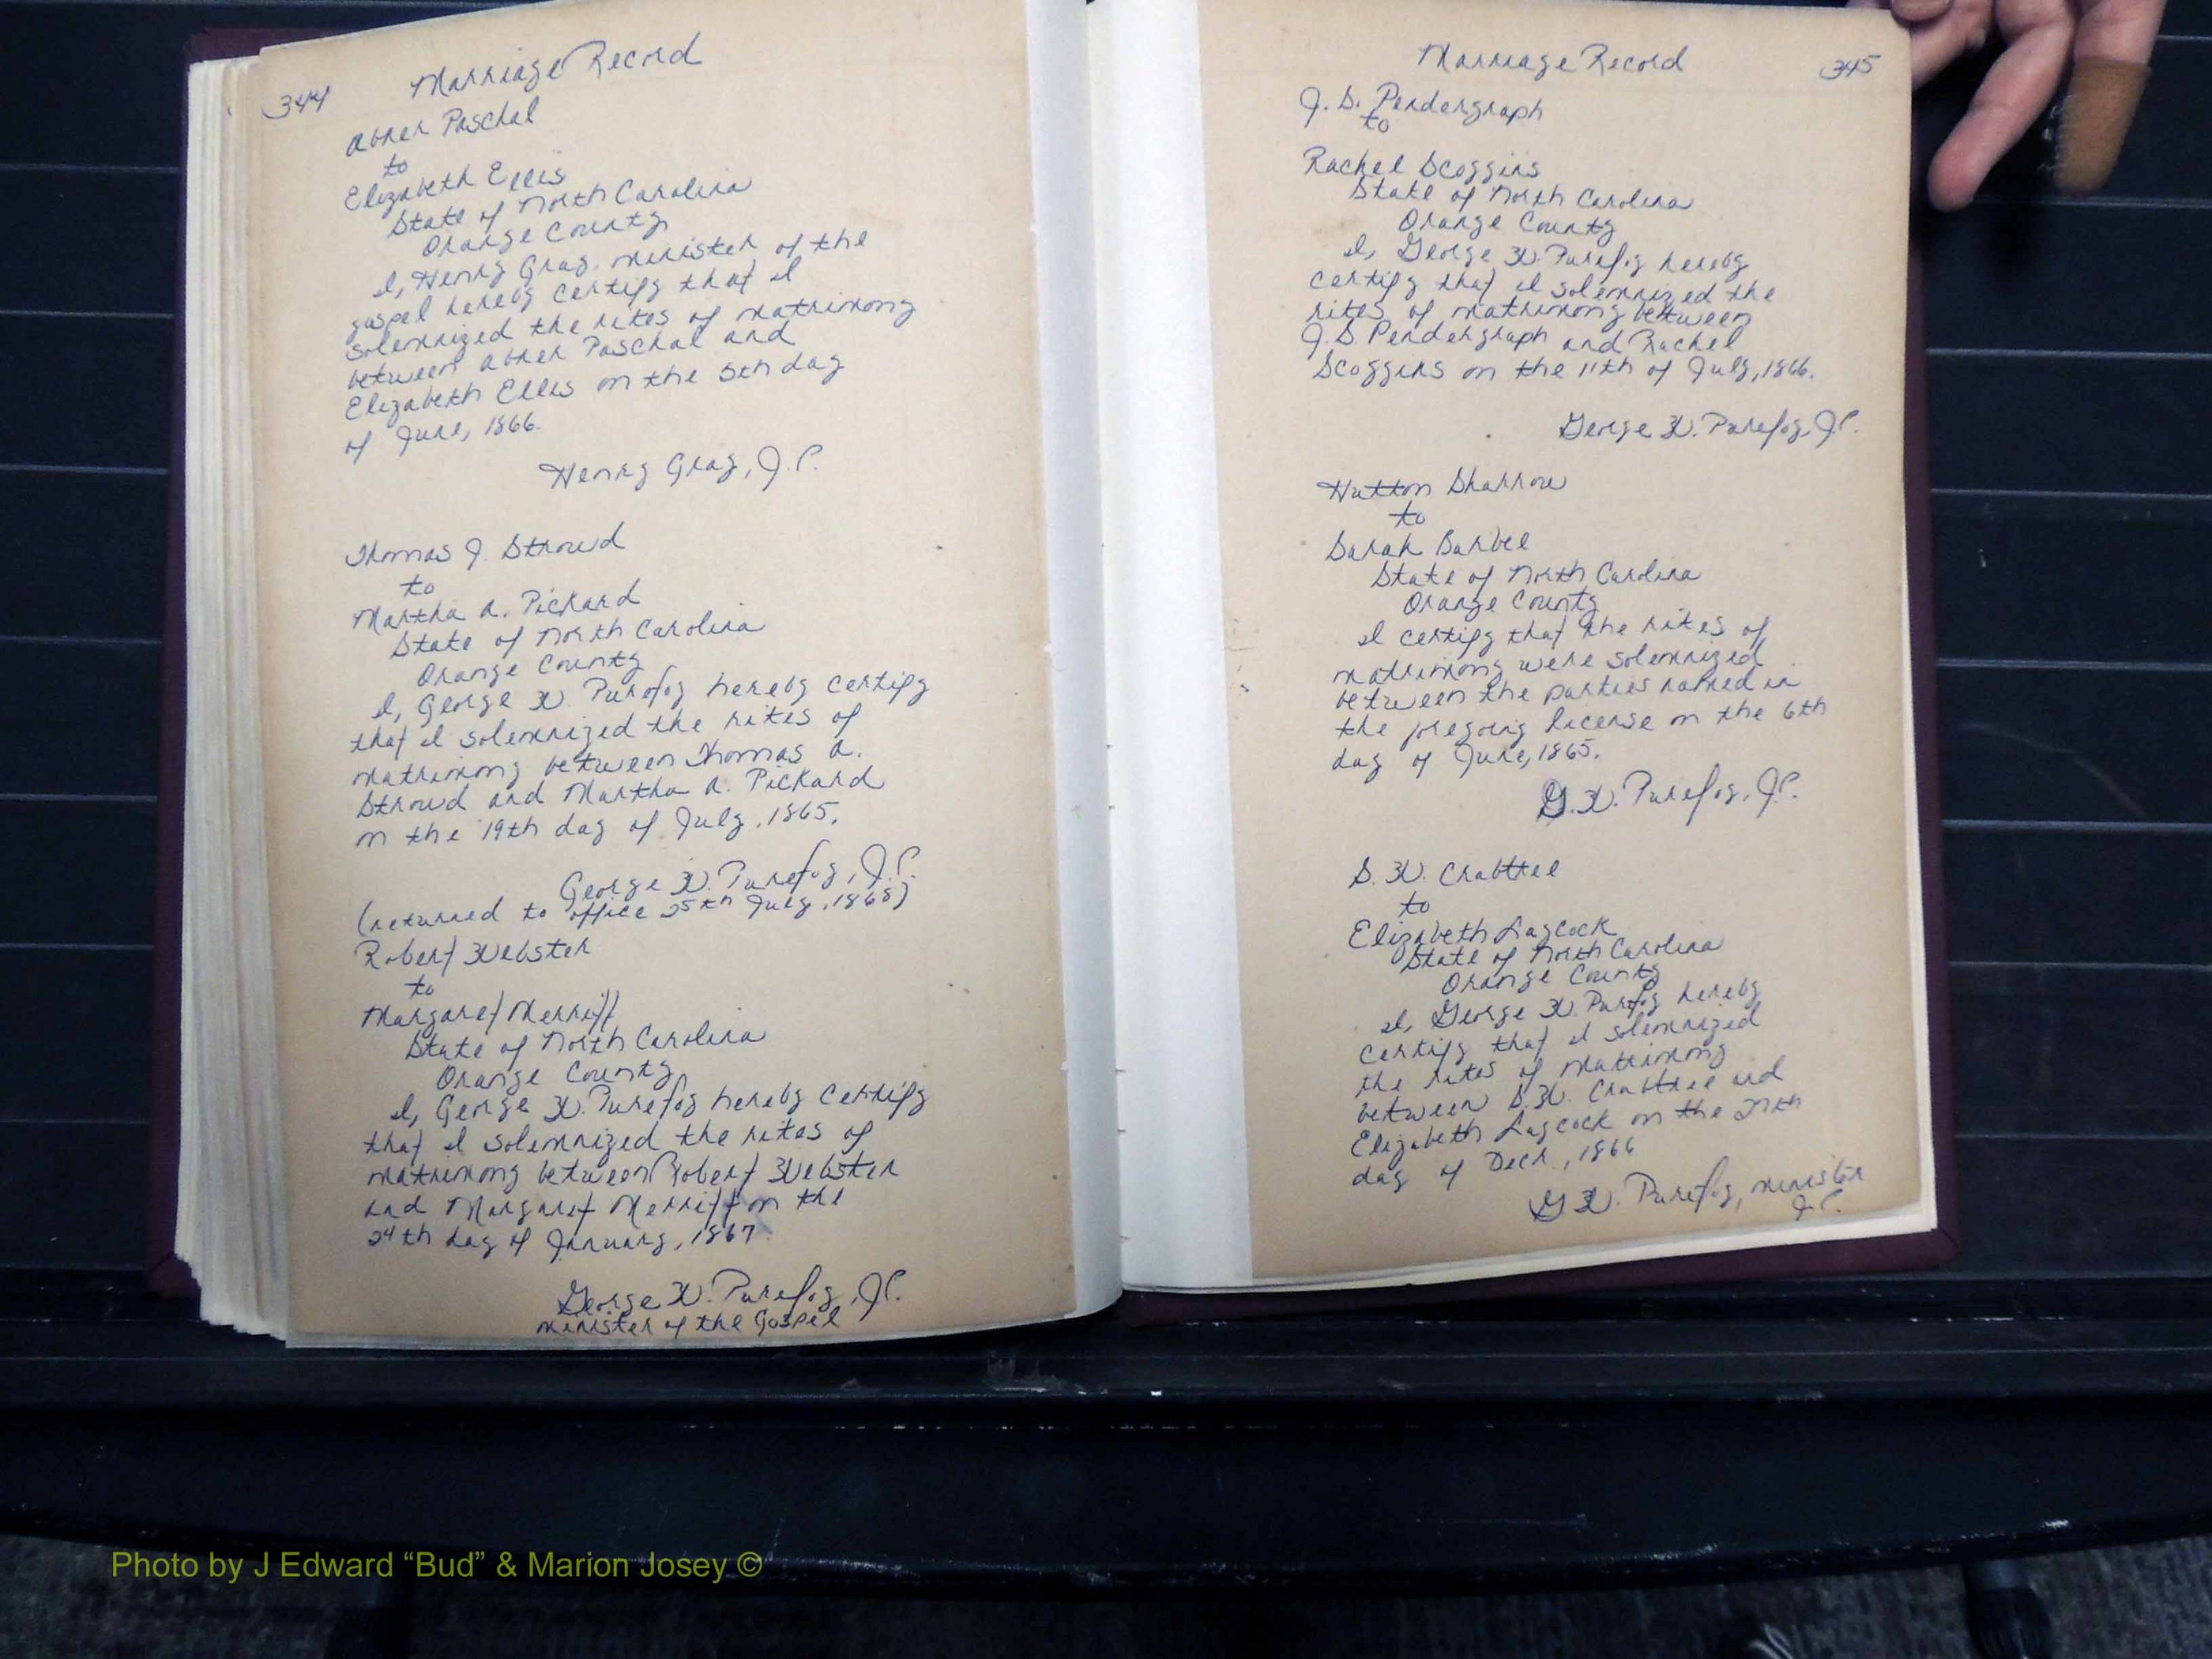 344
Marriage Record
Abner Paschal
to
Elizabeth Ellis
State of North Carolina
Orange County
I, Henry Gray, minister of the
gospel hereby certify that I
solemnized the rites of matrimony
between Abner Paschal and
Elizabeth Ellis on the 5th day
of June, 1866.
Henry Gray, J.P.
Thomas J. Strowd
to
Martha A. Pickard
State of North Carolina
Orange County
I, George W. Purefoy hereby certify
that I solemnized the rites of
matrimony between Thomas A.
Strowd and Martha A. Pickard
on the 19th day of July, 1865.
George W. Purefoy, J.P.
(returned to office 25th July, 1868)
Robert Webster
to
Margaret Merritt
State of North Carolina
Orange County
I, George W. Purefoy hereby certify
that I solemnized the rites of
matrimony between Robert Webster
and Margaret Merritt on the
24th day of January, 1867.
George W. Purefoy, J.P.
minister of the Gospel
Marriage Record
345
J. S. Pendergraph
to
Rachel Scoggins
State of North Carolina
Orange County
I, George W. Purefoy hereby
certify that I solemnized the
rites of matrimony between
J.S. Pendergraph and Rachel
Scoggins on the 11th of July, 1866.
George W. Purefoy, J.P.
Hutton Sharrow
to
Sarah Barbee
State of North Carolina
Orange County
I certify that the rites of
matrimony were solemnized
between the parties named in
the foregoing license on the 6th
day of June, 1865.
G.W. Purefoy, J.P.
S. W. Crabttee
to
Elizabeth Laycock
State of North Carolina
Orange County
I, George W. Purefoy hereby
certify that I solemnized
the rites of matrimony
between S.W. Crabttee and
Elizabeth Laycock on the 27th
day of Decr., 1866
G W. Purefoy, minister
J.P.
Photo by J Edward “Bud” & Marion Josey ©